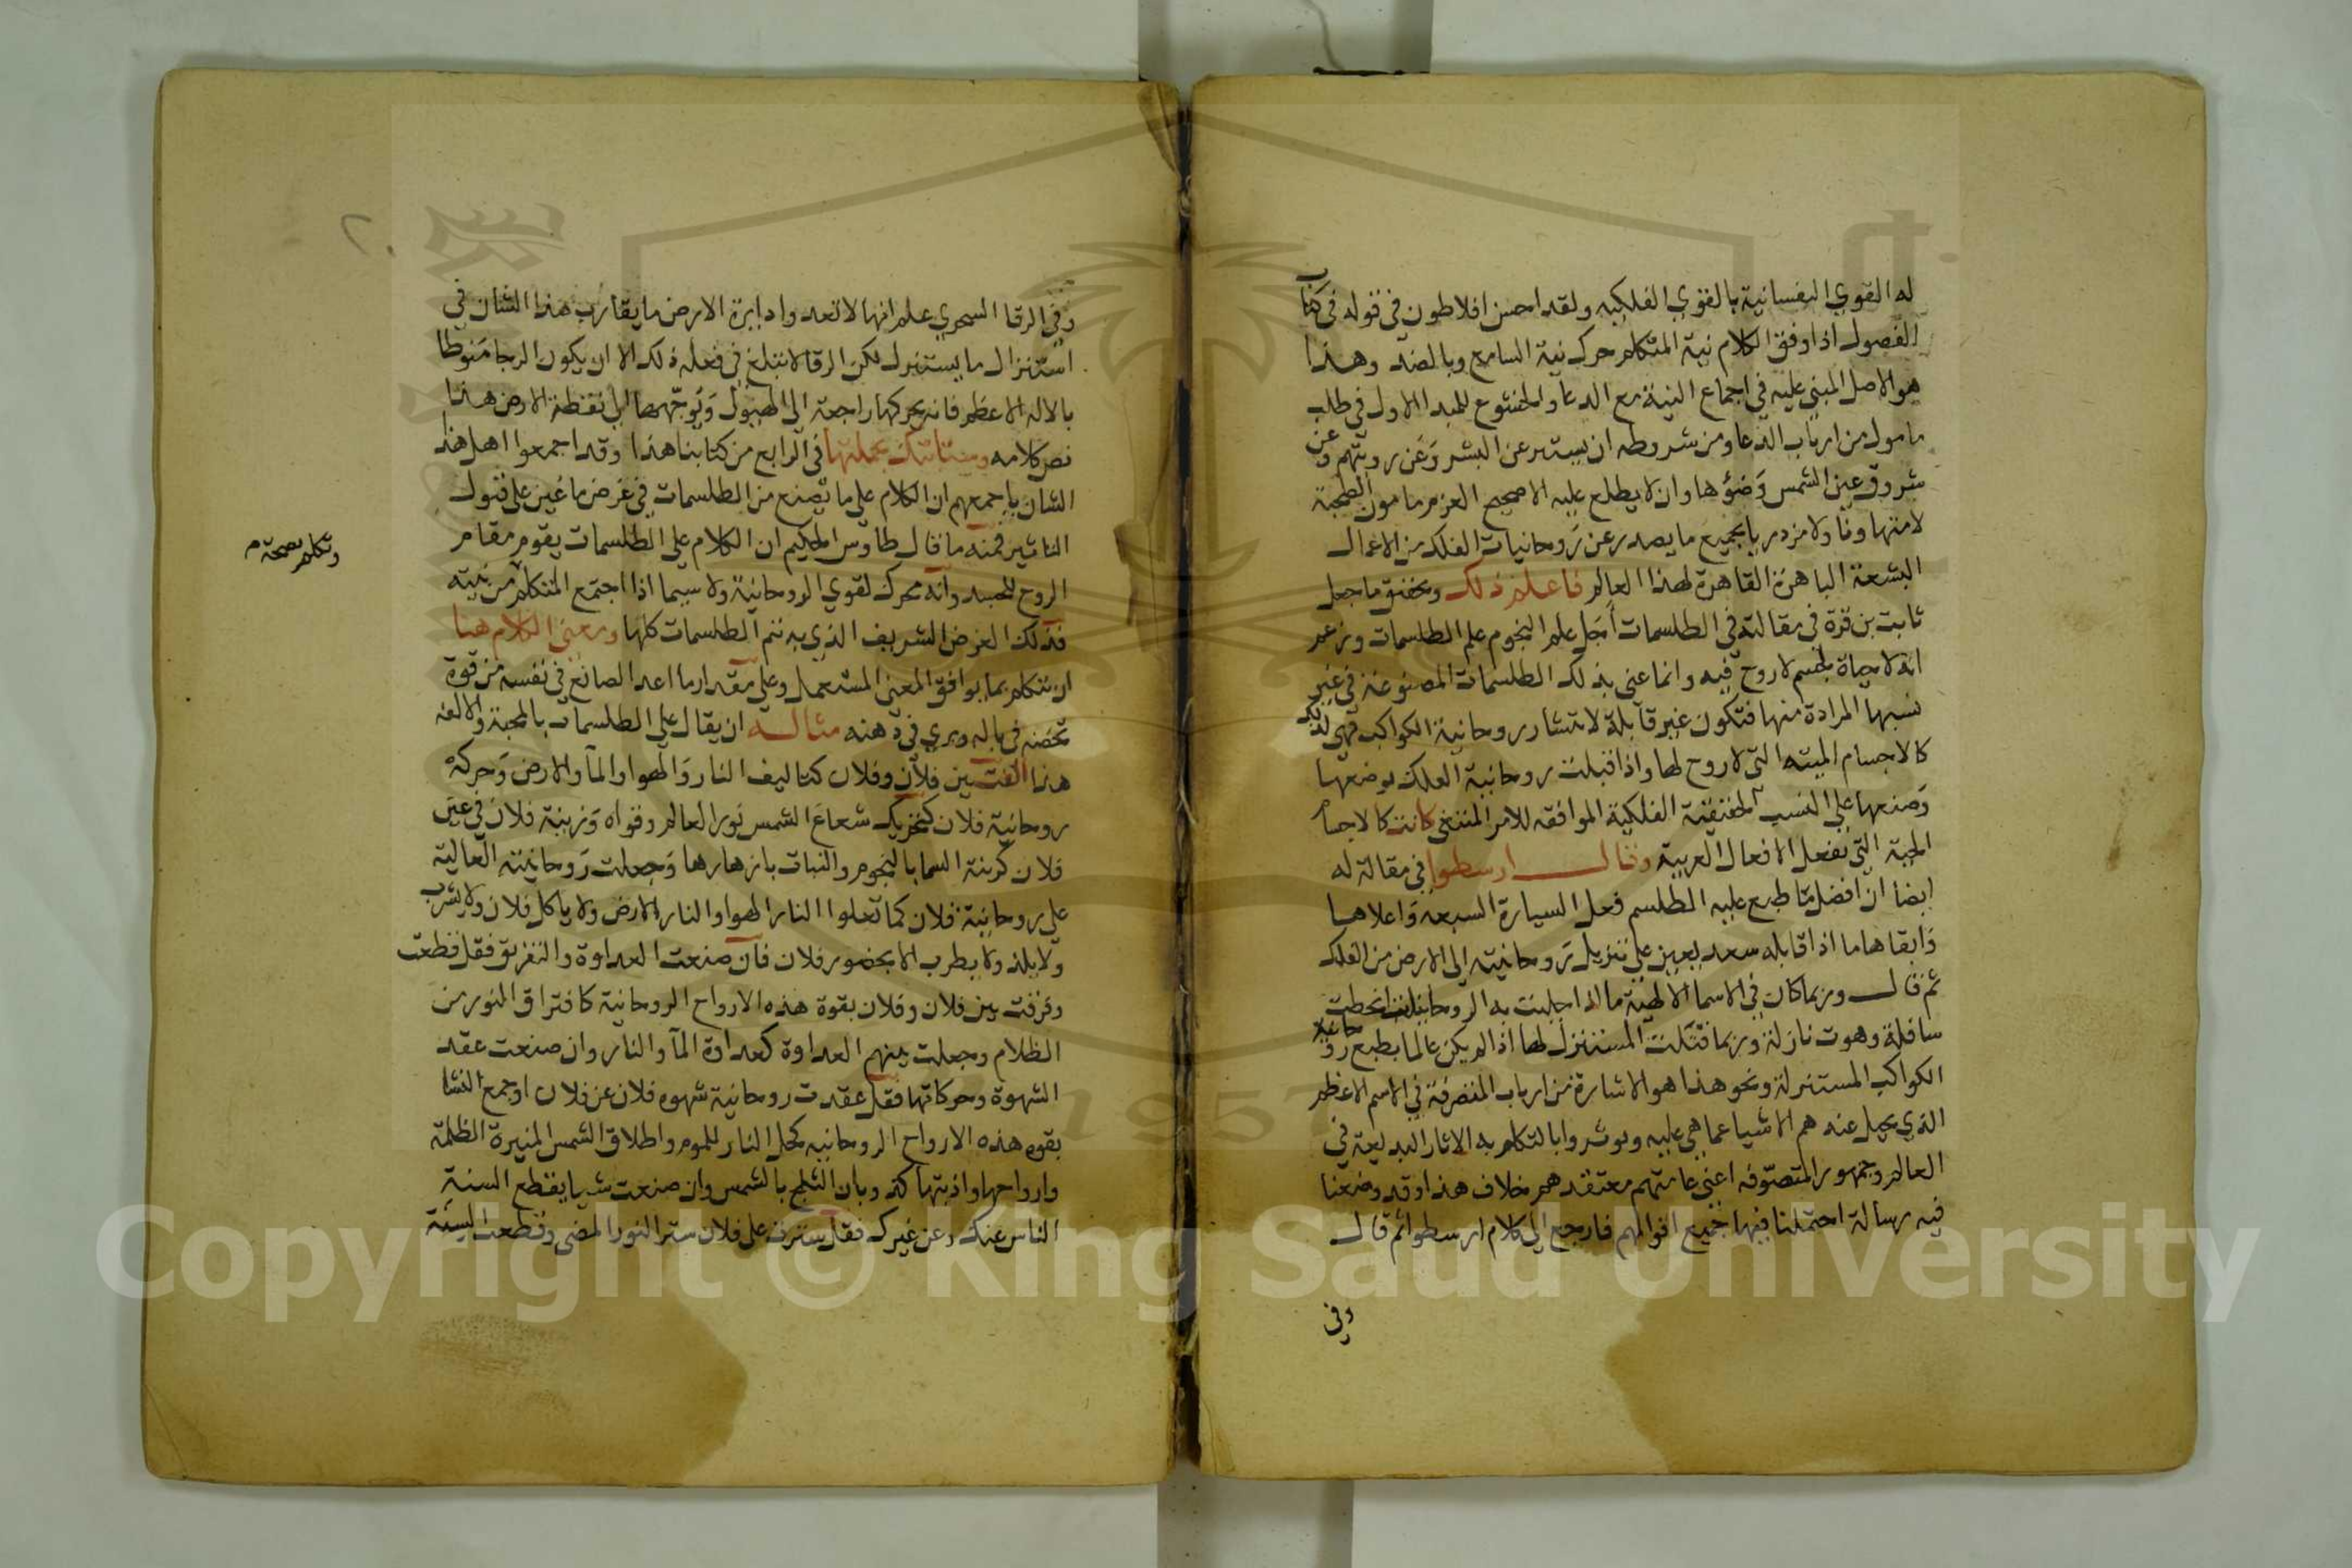 له القوي النفسانية بالقوي الفلكيه ولقد احسن افلاطون في قوله في كتاب
الفصول اذا وفق الكلام نية المتكلم حرك نية السامع وبالضد وهذا
هو الاصل المبني عليه في اجماع النية مع الدعا والخشوع للمبدا الاول في طلب
مامول من ارباب الدعا ومن شروطه ان يستر عن البشر وعن رويتهم وعن
شروق عين الشمس وضؤها وان لا يطلع عليه الا صحيح العزم مامون الصحبة
لا متهاونا ولا مزدريا بجميع ما يصدر عن روحانيات الفلك من الاعمال
البشعة الباهرة القاهرة لهذا العالم فاعلم ذلك وتحقق ما جعل
ثابت بن قرة في مقالته في الطلسمات أجل علم النجوم علم الطلسمات وزعم
انه لا حياة لجسم لا روح فيه وانما عني بذلك الطلسمات المصنوعة في غير
نسبها المرادة منها فتكون غير قابلة لانتشار روحانية الكواكب فهي لذلك
كالاجسام الميته التي لا روح لها واذا قبلت روحانية الفلك بوضعها
وصنعها علي النسب الحقيقية الفلكية الموافقه للامر المبتغي كانت كالاجسام
الحية التي تفعل الافعال الغريبة وقال ارسطوا في مقالة له
ايضا ان افضل ما طبع عليه الطلسم فعل السيارة السبعه واعلاها
وابقاها ما اذا قابله سعد يعين علي تنزيل روحانيته الي الارض من الفلك
ثم قال وربما كان في الاسما الالهية ما اذا اجلبت به الروحانيات انحطت
سافلة وهوت نازلة وربما قتلت المستنزل لها اذا لم يكن عالما بطبع روحانية
الكواكب المستنزلة ونحو هذا هو الاشارة من ارباب المتصرفة في الاسم الاعظم
الذي يحيل عنه هم الاشيا عما هي عليه ويوثروا بالتكلم به الاثار البديعة في
العالم وجمهور المتصوفه اعني عامتهم معتقدهم خلاف هذا وقد وضعنا
فيه رسالة احتملنا فيها جميع اقوالهم فارجع الي كلام ارسطوا ثم قال
وفي
٢٠
وفي الرقا السحري علم انها لا تعدوا دايرة الارض ما يقارب هذا الشان في
استنزال ما يستنزل لكن الرقا لا تبلغ في فعله ذلك الا ان يكون الرجا منوطا
بالاله الاعظم فانه يحركها راجعة الي الهبول وتوجهها الي نقطة الارض هذا
نص كلامه وستاتيك بجملتها في الرابع من كتابنا هذا وقد اجمعوا اهل هذا
الشان باجمعهم ان الكلام علي ما يصنع من الطلسمات في غرض ما عين علي قبول
التاثير فمنه ما قال طاوس الحكيم ان الكلام علي الطلسمات يقوم مقام
الروح للجسد وانه محرك لقوي الروحانية ولا سيما اذا اجتمع المتكلم من نيته
وتكلم بصحة م
فذلك الغرض الشريف الذي به تتم الطلسمات كلها ومعني الكلام هنا
ان تتكلم بما يوافق المعني المستعمل وعلي مقدار ما اعد الصانع في نفسه من قوة
تحضه في باله ويري في ذهنه مثاله ان يقال علي الطلسمات بالمحبة والالفه
هذا الفت بين فلان وفلان كتاليف النار والهوا والمآ والارض وحركة
روحانية فلان كتحريك شعاع الشمس نور العالم وقواه وزينة فلان في عين
فلان كزينة السما بالنجوم والنبات بازهارها وجعلت روحانيته العالية
علي روحانية فلان كما تعلوا النار الهوا والنار الارض ولا ياكل فلان ولا يشرب
ولا يلذ ولا يطرب الا بحضور فلان فان صنعت العداوة والتفريق فقل قطعت
وفرقت بين فلان وفلان بقوة هذه الارواح الروحانية كافتراق النور من
الظلام وجعلت بينهم العداوة كعداوة المآ والنار وان صنعت عقد
الشهوة وحركاتها فقل عقدت روحانية شهوه فلان عن فلان او جمع النسا
بقوه هذه الارواح الروحانيه كحل النار للموم واطلاق الشمس المنيرة الظلمة
وارواحها واذبتها كذوبان الثلج بالشمس وان صنعت شيا يقطع السنة
الناس عنك وعن غيرك فقل سترت علي فلان ستر النور المضي وقطعت السنة
Copyright © King Saud University
1957